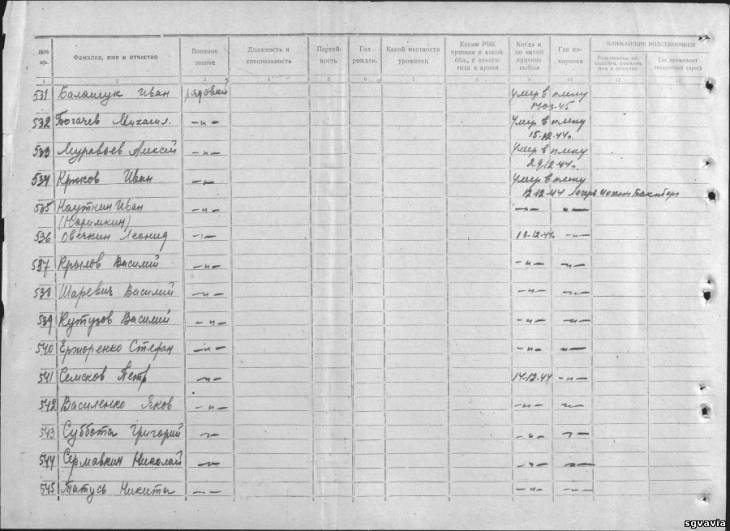 №№ пр. Фамилия, имя и отчество Военное звание Должность и специальность Партийность Год рожден. Какой местности уроженец Каким РВК призван Когда и по какой причине выбыл Где похоронен БЛИЖАЙШИЕ РОДСТВЕННИКИ
1 2 3 4 5 6 7 8 9 10
531 Балащук Иван рядовой Умер в плену
1703.45
532 Богачев Михаил. -"- Умер в плену
15.12.44г.
533 Муравьев Алексей -"- Умер в плену
29.12.44г.
534 Крюков Иван -"- Умер в плену
12.12.44 лагерь
535 Иван -"- -"- -"-
536 Овечкин Леонид -"- 13.12.44г. -"-
537 Крылов Василий -"- -"- -"-
538 Шаревич Василий -"- -"- -"-
539 Кутузов Василий -"- -"- -"-
540 Степан -"- -"- -"-
541 Петр -"- 14.12.44 -"-
542 Василенко Яков -"- -"- -"-
543 Суббота Григорий -"- -"- -"-
544 Сермавкин Николай -"- -"- -"-
545 Татусь Никита -"- -"- -"-
sgvavia